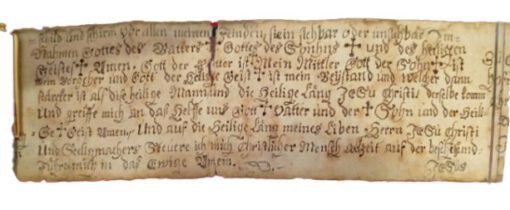 Schild und Schirm Vor allen meinen Feinden, sie sein sichbar oder unsichbar Im
Nahmen Gottes des Vatters ✝ Gottes des Sohns ✝ und des heiligen
Geistes ✝ Amen. Gott der Vater ist Mein Mittler Gott der Sohn ✝ ist
mein und Gott der Heilige Geist ✝ ist mein Beystand und welcher dann
starcker ist als dise heilige Mann und die Heilige Läng JESU Christi derselbe komm
Und greiffe mich an das Helffe uns Gott ✝ Vatter und der ✝ Sohn und der Heili-
Ge ✝ Geist Amen, Und auf die Heilige Läng meines Liben Herrn JESU Christi
Und Seligmachers Steuere ich mich Christlicher Mensch auf der
Führe mich in das Ewige Amen.
JESUS